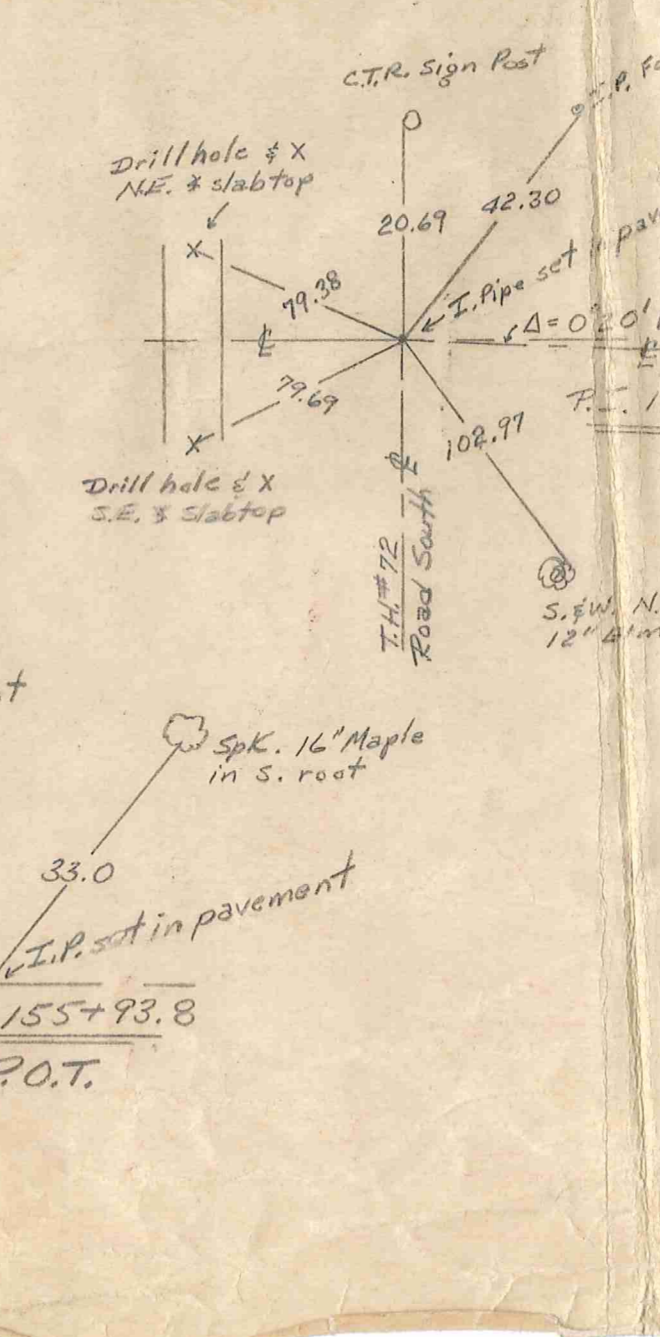 C.T.R. Sign Post
I.P.
Drill hole & X
N.E. & slabtop
20.69
42.30
X
79.38
I. Pipe set
Δ = 0°20'
℄
℄
79.69
P.I.
102.97
X
Drill hole & X
S.E. & Slabtop
℄
T.H. #72
Road South
S. & W. N.
12"
t
Spk. 16" Maple
in S. root
33.0
I.P. set in pavement
155+93.8
P.O.T.